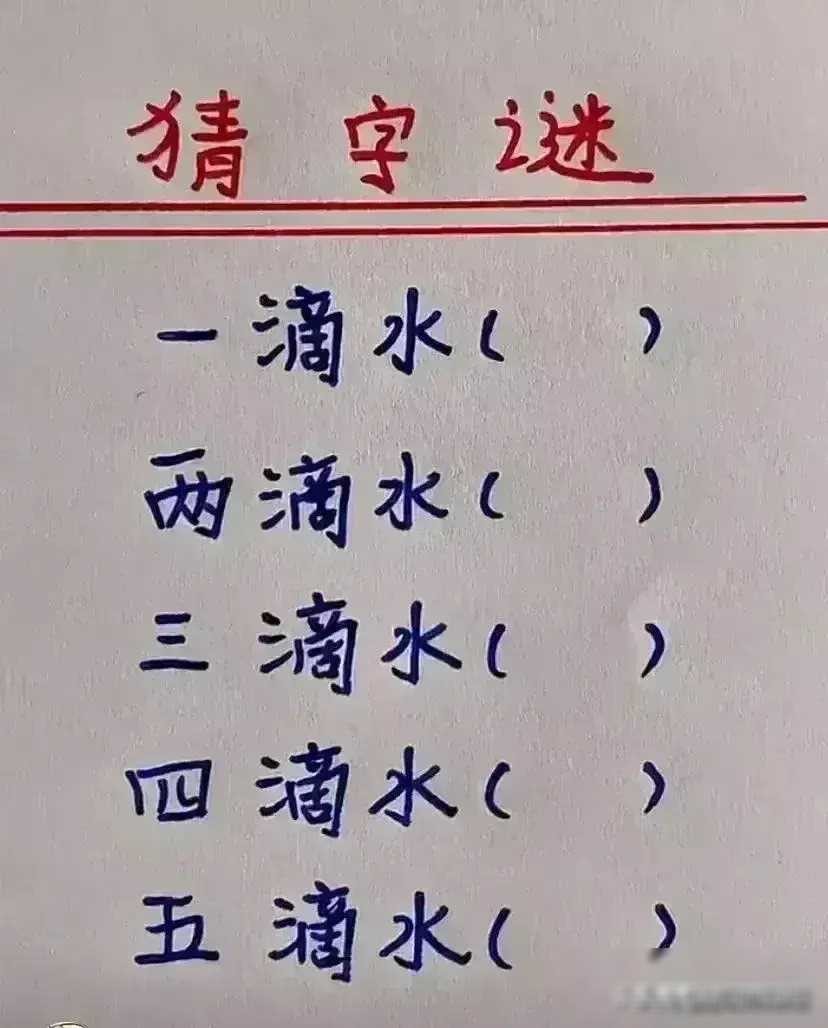 猜字谜
一滴水( )
两滴水( )
三滴水( )
四滴水( )
五滴水( )